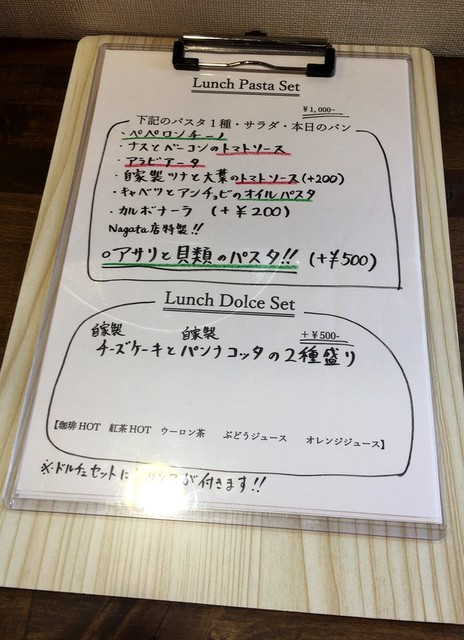 Lunch Pasta Set
¥1,000-
下記のパスタ1種・サラダ・本日のパン
・ペペロンチーノ
・ナスとベーコンのトマトソース
・アラビアータ
・自家製ツナと大葉のトマトソース(+200)
・キャベツとアンチョビのオイルパスタ
・カルボナーラ (+¥200)
Nagata店特製!!
○アサリと貝類のパスタ!! (+¥500)
Lunch Dolce Set
+¥500-
自家製 自家製
チーズケーキとパンナコッタの2種盛り
【珈琲HOT 紅茶HOT ウーロン茶 ぶどうジュース オレンジジュース】
※ドルチェセットに リンクが付きます!!